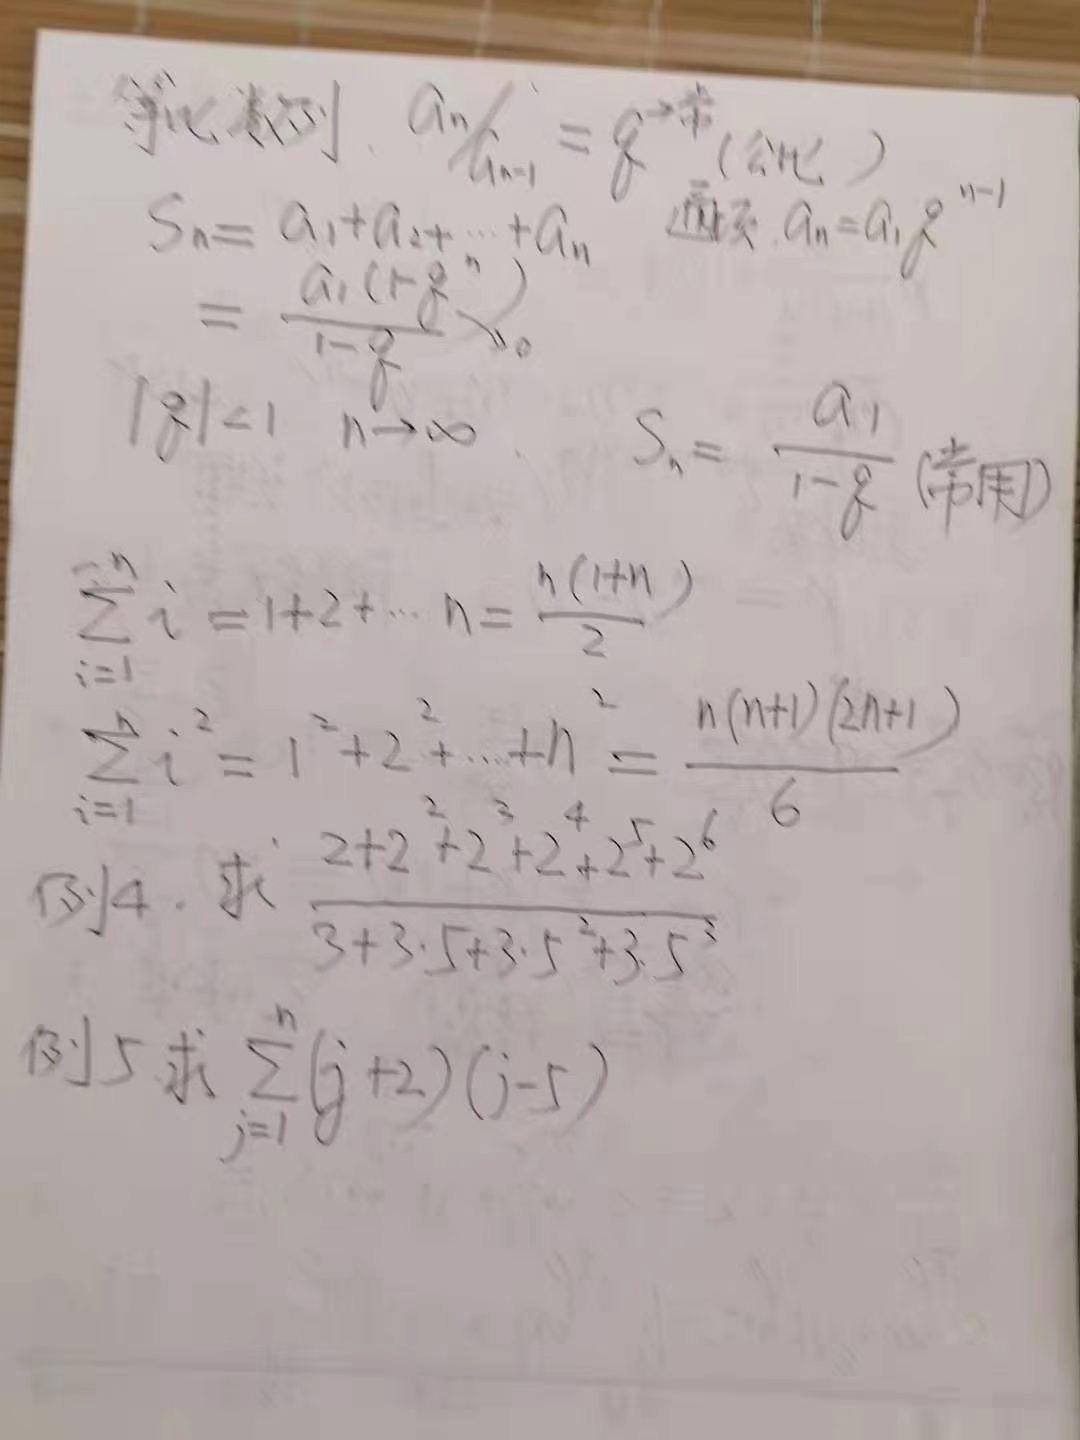 等比数列. aₙ/aₙ₋₁ = q →常 (公比)
Sₙ = a₁+a₂+…+aₙ 通项. aₙ=a₁qⁿ⁻¹
= a₁(1-qⁿ)/(1-q) ↘0
|q|<1 n→∞. Sₙ = a₁/(1-q) (常用)
∑ⁿᵢ₌₁ i = 1+2+… n = n(1+n)/2
∑ⁿᵢ₌₁ i² = 1²+2²+…+n² = n(n+1)(2n+1)/6
例4. 求 (2+2²+2³+2⁴+2⁵+2⁶)/(3+3·5+3·5²+3·5³)
例5.求 ∑ⁿⱼ₌₁ (j+2)(j-5)